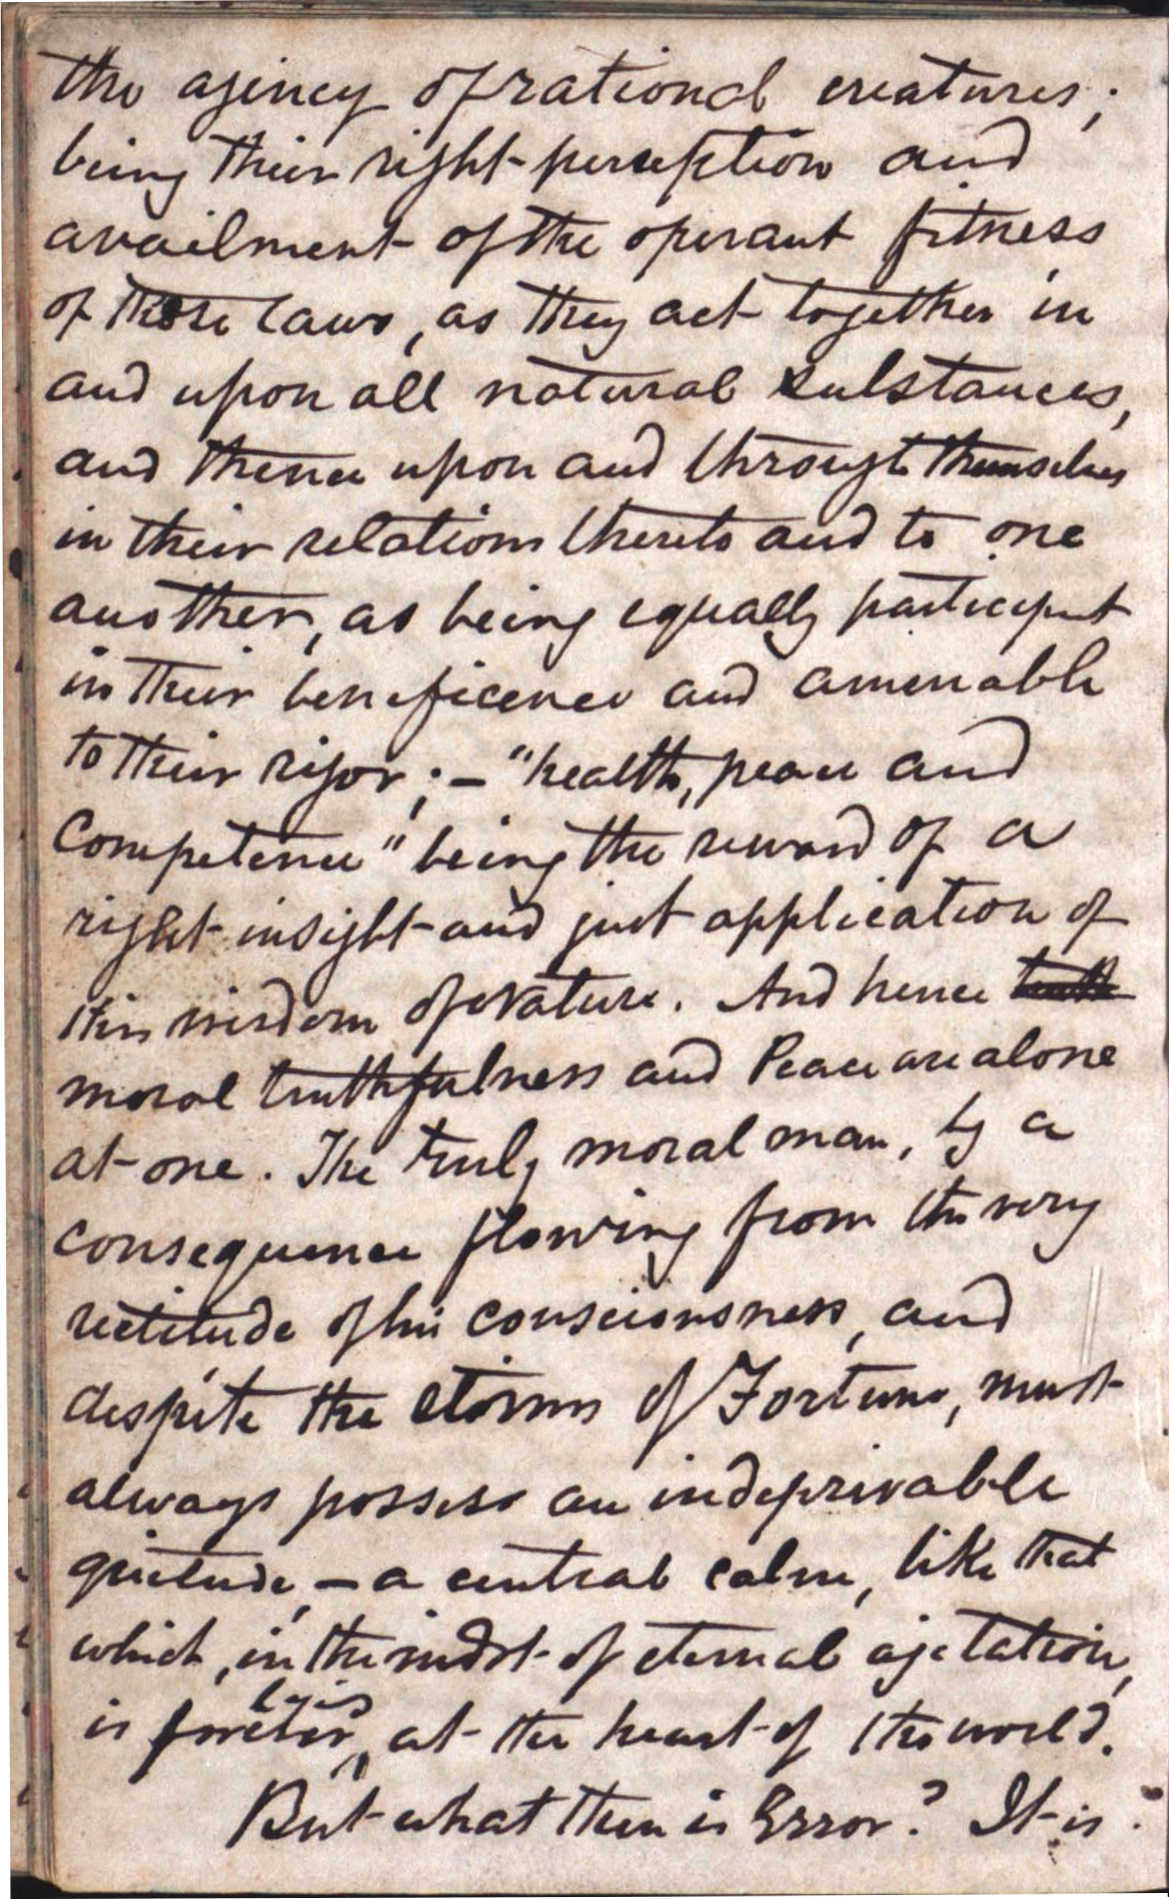 the agency of rational creatures;
being their right perception and
availment of the operant fitness
of those laws, as they act together in
and upon all natural substances,
and thence upon and through themselves
in their relations thereto and to one
another, as being equally participant
in their beneficence and amenable
to their rigor; — "health, peace and
Competence" being the reward of a
right insight and just application of
this wisdom of Nature. And hence truth
moral truthfulness and Peace are alone
at one. The truly moral man, by a
consequence flowing from the very
rectitude of his consciousness, and
despite the storms of Fortune, must
always possess an indeprivable
quietude, — a central calm, like that
which, in the midst of eternal agitation,
is forever at the heart of the world.
But what then is Error? It is